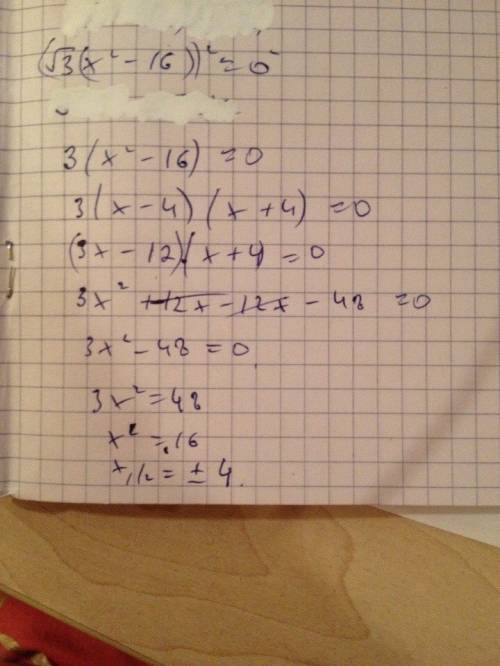 (√3(x² - 16))² = 0²
3(x² - 16) = 0
3(x - 4) (x + 4) = 0
(3x - 12)(x + 4) = 0
3x² +12x - 12x - 48 = 0
3x² - 48 = 0
3x² = 48
x² = 16
x₁/₂ = ± 4.